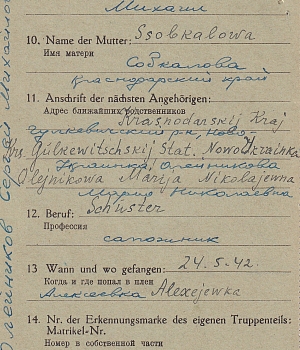 Михаил
10. Name der Mutter: Ssobkalowa
Имя матери
Собкалова
Краснодарский край
11. Anschrift der nächsten Angehörigen:
Адрес ближайших родственников
Krasnodarskij Kraj
Гулькевичский р-н, Ново-
Gülkewitschskij Stat. Nowo Ukrainka
Украинка, Олейникова
Olejnikowa Marija Nikolajewna
Мария Николаевна
12. Beruf: Schuster
Профессия
сапожник
13 Wann und wo gefangen: 24.5.42.
Когда и где попал в плен
Алексеевка Alexejewka
14. Nr. der Erkennungsmarke des eigenen Truppenteils:
Matrikel-Nr.
Номер в собственной части
Олейников Сергей Михайлов